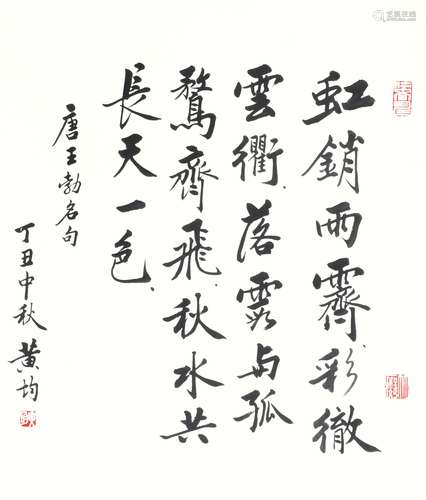 虹銷雨霽彩徹
雲衢落霞與孤
鶩齊飛秋水共
長天一色
唐王勃名句
丁丑中秋黄均